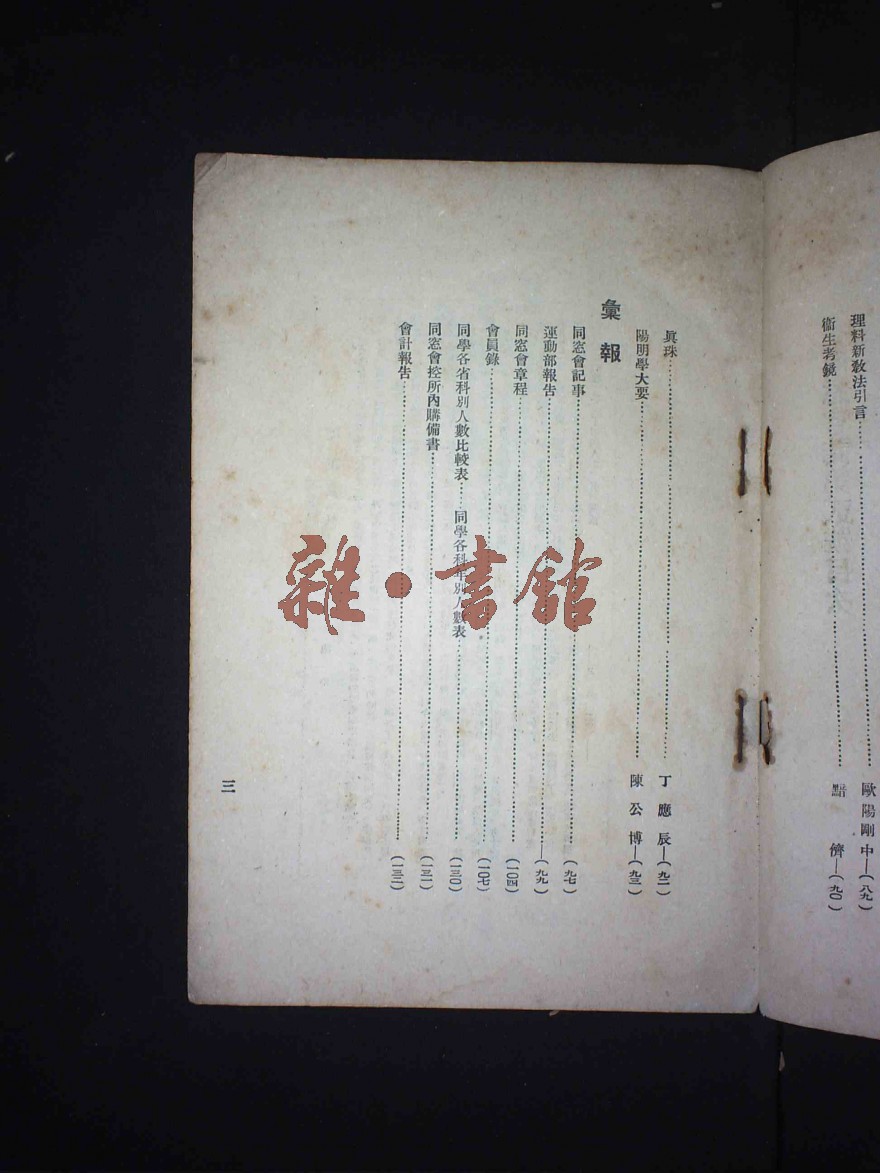 理料新敎法引言……歐陽剛中—(八九)
衞生考鏡……黯儕—(九〇)
眞珠……丁應辰—(九二)
陽明學大要……陳公博—(九三)
彙報
同窓會記事……(九七)
運動部報告……(九九)
同窓會章程……(一〇四)
會員錄……(一〇七)
同學各省科別人數比較表……同學各科年別人數表……(一三〇)
同窓會控所內購備書……(一三一)
會計報告……(一三二)
三
雜·書館